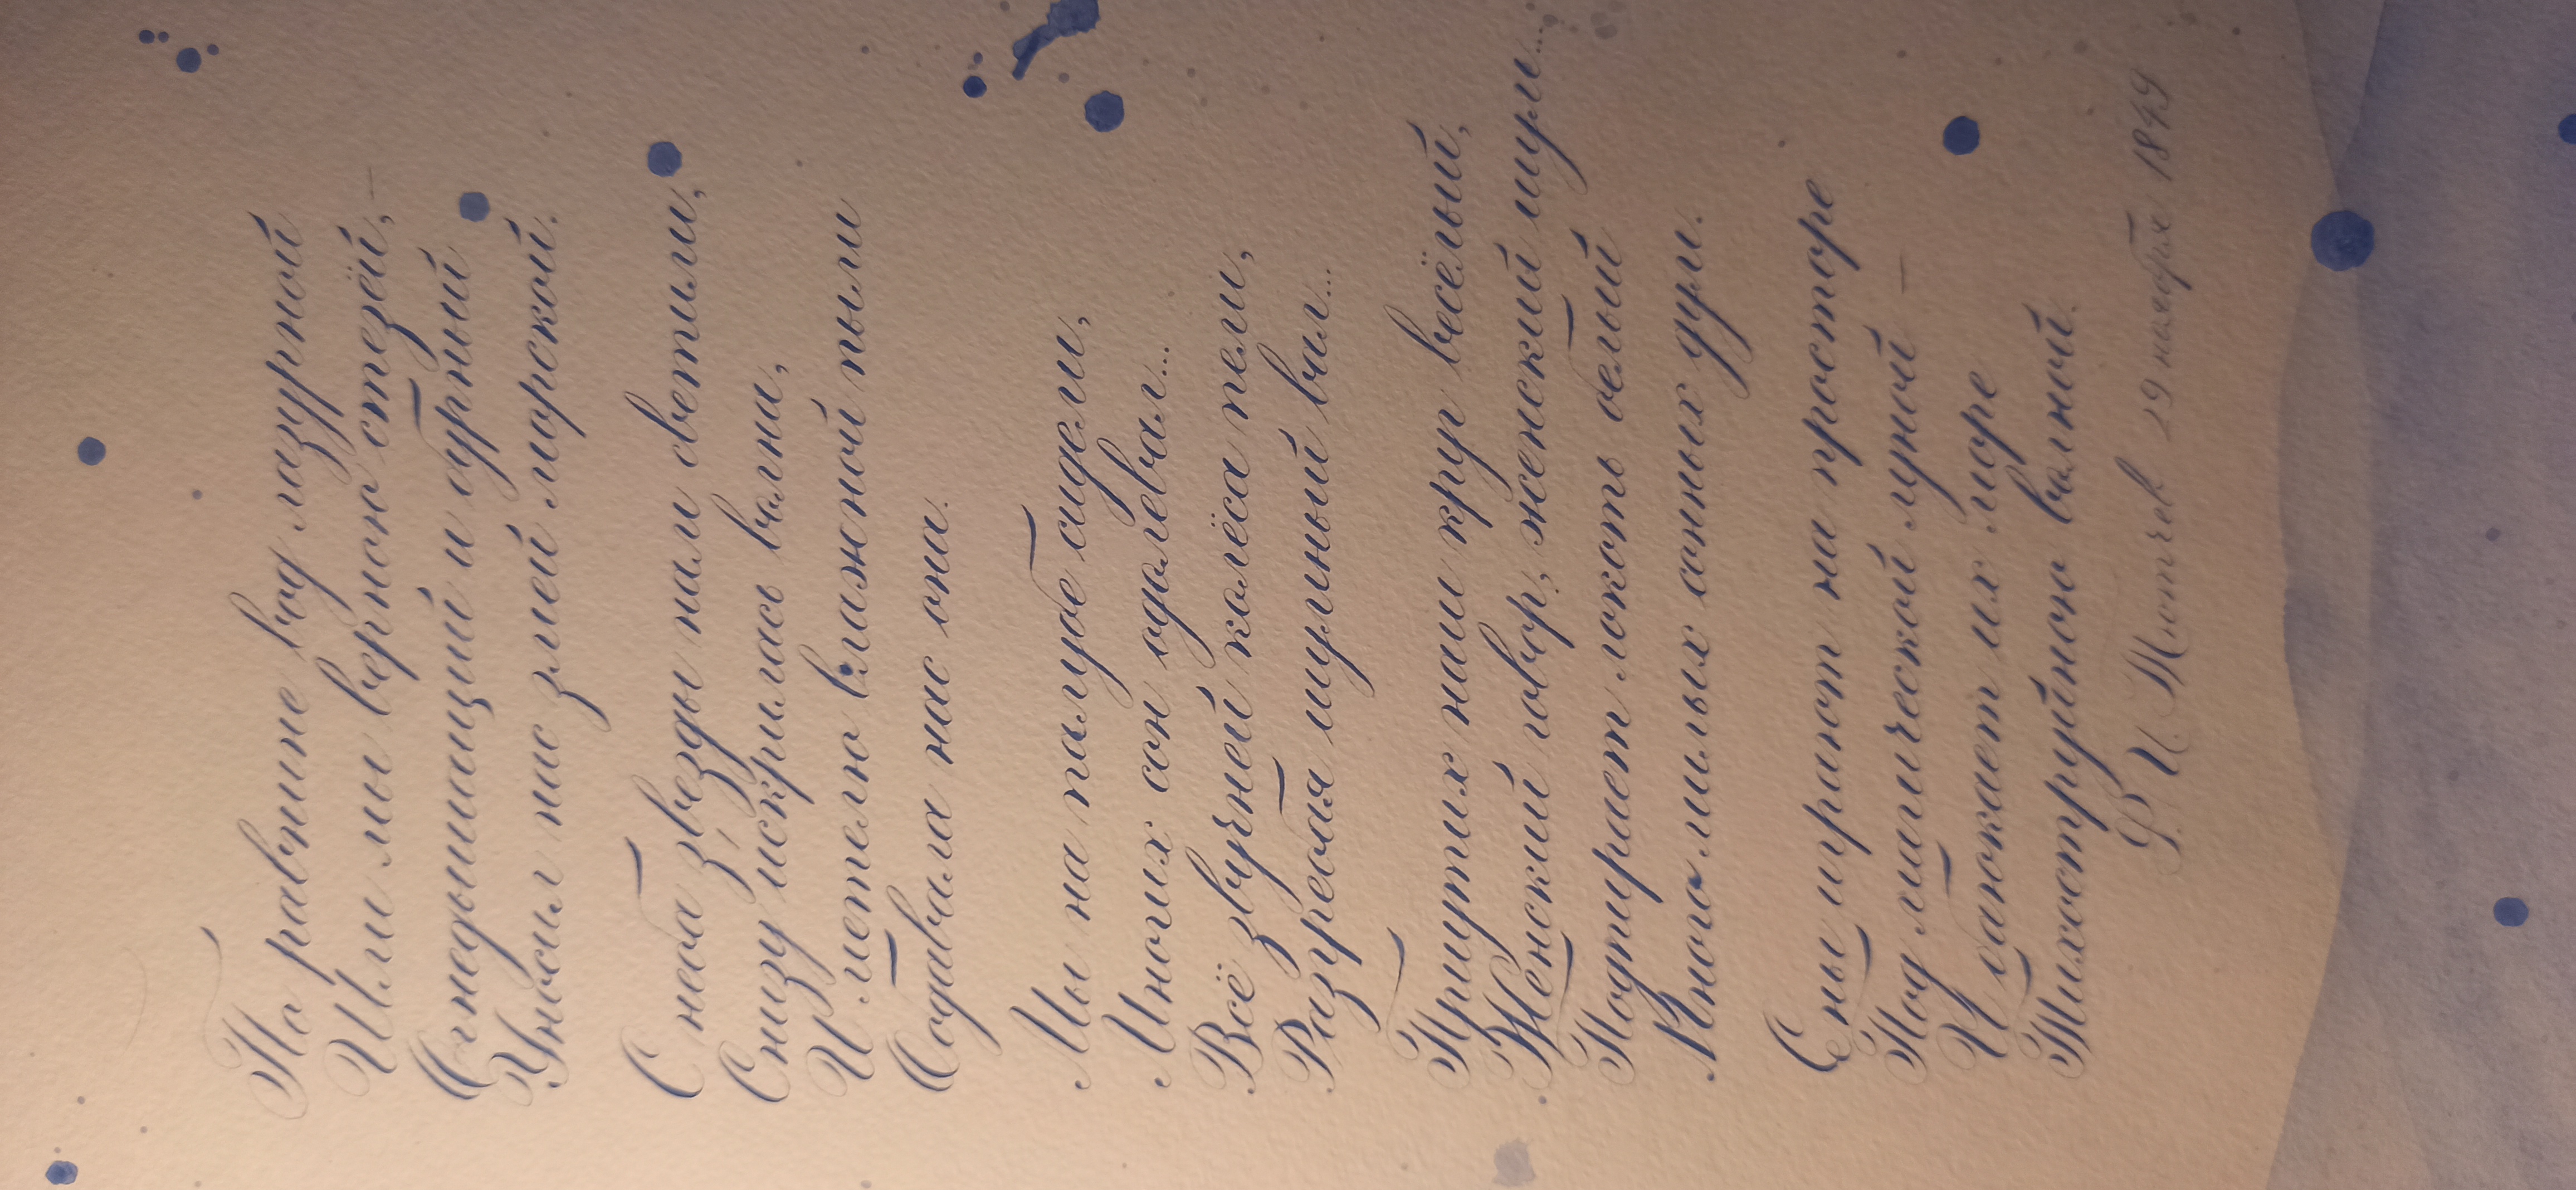 По равнине вод лазурной
Шли мы верною стезёй, –
Огнедышащий и бурный
Уносил нас змей морской.
С неба звезды нам светили,
Снизу искрилась волна,
И метелью влажной пыли
Обдавала нас она.
Мы на палубе сидели,
Многих сон одолевал...
Всё звучней колёса пели,
Разгребая шумный вал...
Приутих наш круг весёлый,
Женский говор, женский шум...
Подпирает локоть белый
Много милых сонных дум.
Сны играют на просторе
Под магической луной –
И баюкает их море
Тихоструйною волной.
Ф. И. Тютчев 29 ноября 1849